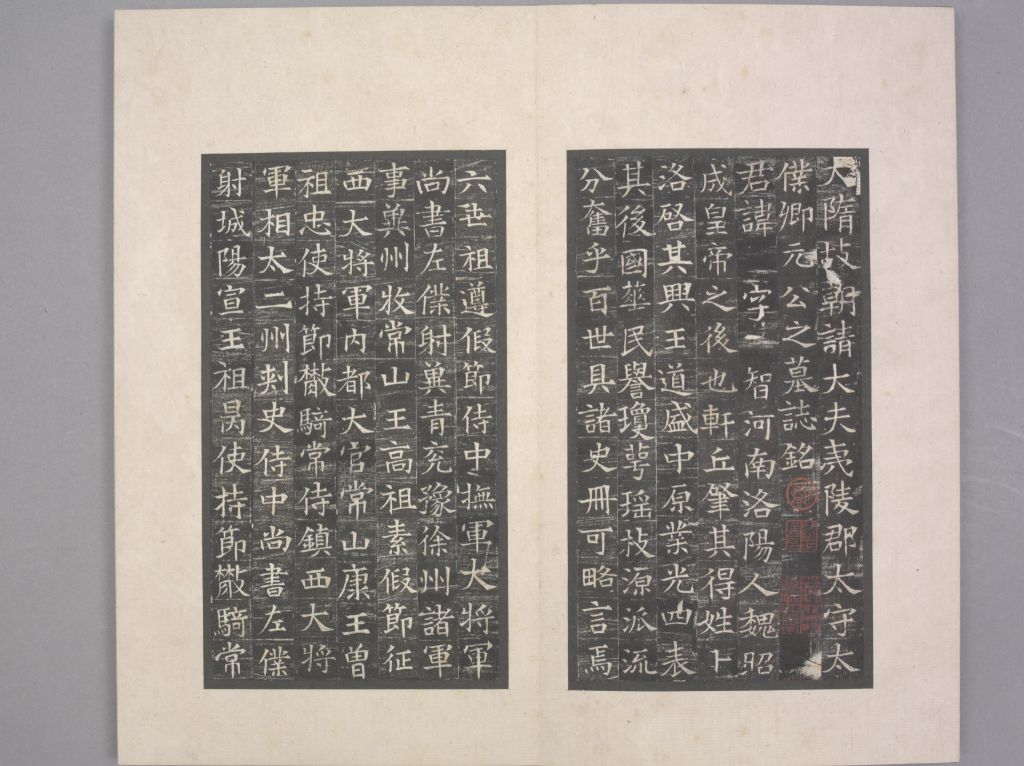 大隋故朝請大夫夷陵郡太守太
僕卿元公之墓誌銘
君諱　字　智河南洛陽人魏昭
成皇帝之後也軒丘肇其得姓卜
洛啓其興王道盛中原業光四表
其後國華民譽瓊萼瑶枝源派流
分奮乎百世具諸史冊可略言焉
六世祖遵假節侍中撫軍大將軍
尚書左僕射兾青兖豫徐州諸軍
事兾州牧常山王高祖素假節征
西大將軍内都大官常山康王曾
祖忠使持節散騎常侍鎮西大將
軍相太二州刺史侍中尚書左僕
射城陽宣王祖昺使持節散騎常